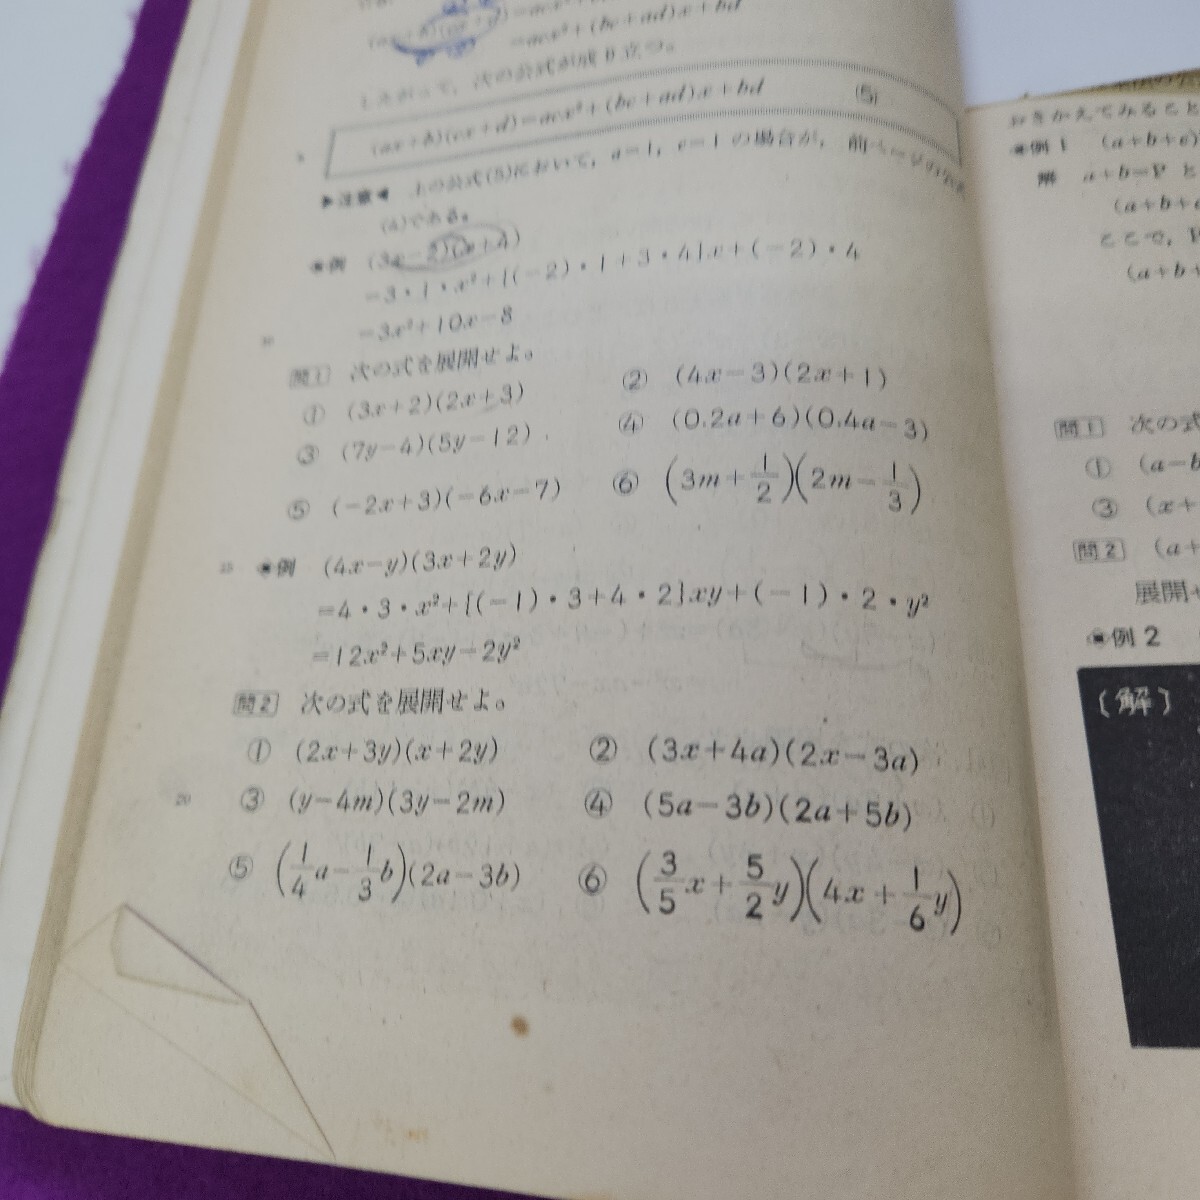 =acx²+(bc+ad)x+bd
したがって，次の公式が成り立つ。
(ax+b)(cx+d)=acx²+(bc+ad)x+bd (5)
5
▶注意◀ 上の公式(5)において，a=1，c=1の場合が，前ページの公式
(4)である。
例 (3x-2)(x+4)
=3・1・x²+{(-2)・1+3・4}x+(-2)・4
10 =3x²+10x-8
問1 次の式を展開せよ。
① (3x+2)(2x+3) ② (4x-3)(2x+1)
③ (7y-4)(5y-12) ④ (0.2a+6)(0.4a-3)
⑤ (-2x+3)(-6x-7) ⑥ (3m+1/2)(2m-1/3)
15 例 (4x-y)(3x+2y)
=4・3・x²+{(-1)・3+4・2}xy+(-1)・2・y²
=12x²+5xy-2y²
問2 次の式を展開せよ。
① (2x+3y)(x+2y) ② (3x+4a)(2x-3a)
20 ③ (y-4m)(3y-2m) ④ (5a-3b)(2a+5b)
⑤ (1/4a-1/3b)(2a-3b) ⑥ (3/5x+5/2y)(4x+1/6y)
おきかえてみること
例1 (a+b+c)
解 a+b=P と
(a+b+c
ここで，P
(a+b+
問1 次の式
① (a-b
③ (x+
問2 (a+
展開せ
例2
〔解〕